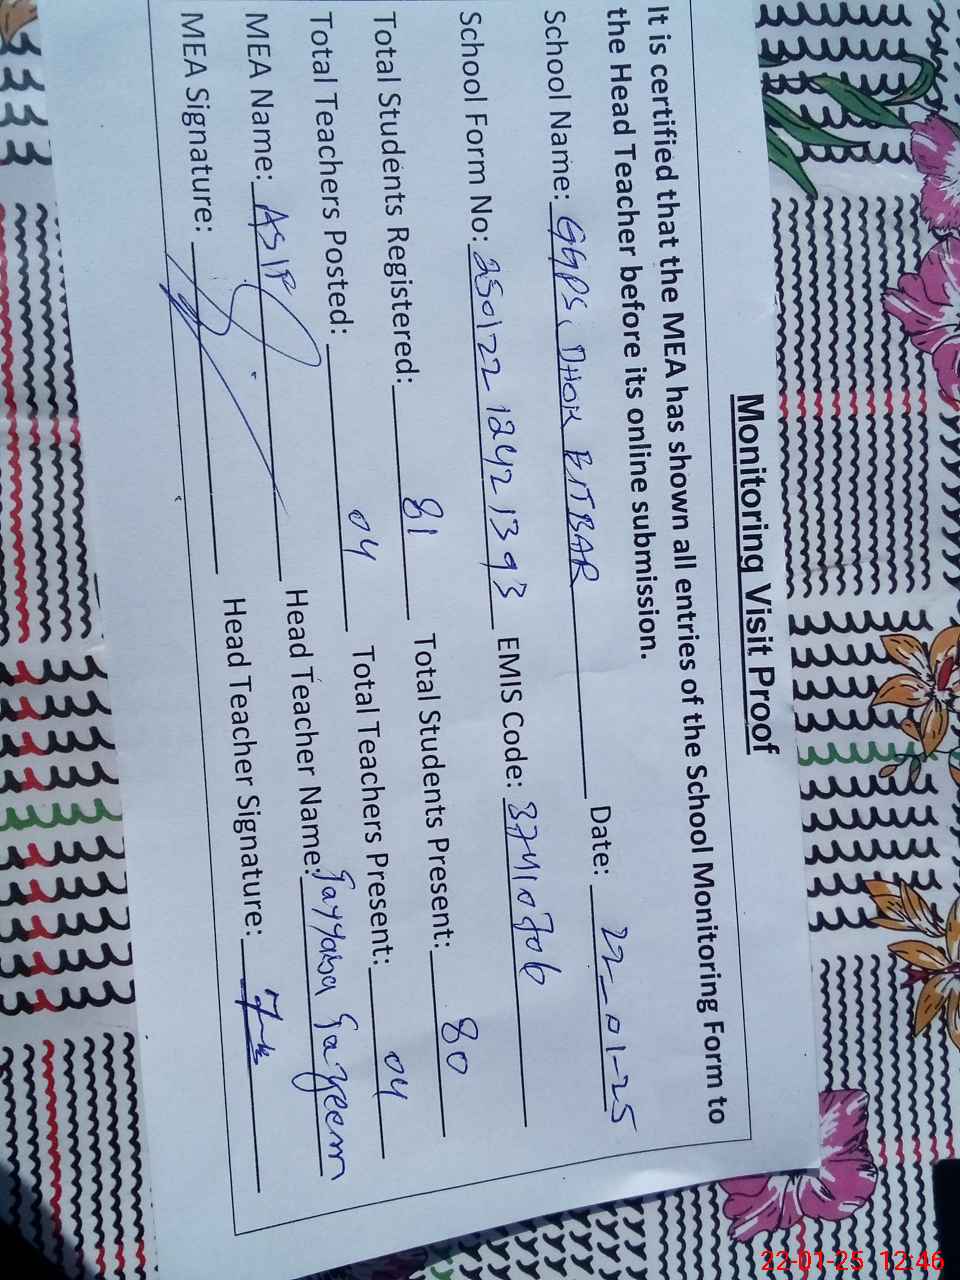 Monitoring Visit Proof
It is certified that the MEA has shown all entries of the School Monitoring Form to
the Head Teacher before its online submission.
School Name: GGPS, DHOK BITBAR Date: 22-01-25
School Form No: 250122 1242 1393 EMIS Code:
Total Students Registered: 81 Total Students Present: 80
Total Teachers Posted: 04 Total Teachers Present: 04
MEA Name: ASIF Head Teacher Name:
MEA Signature: Head Teacher Signature:
22-01-25 12:46